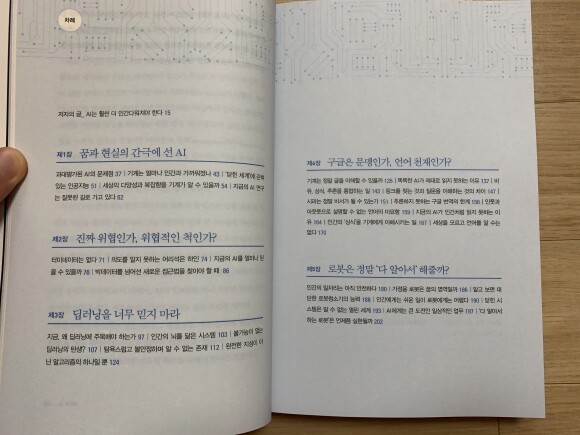 차례
저자의 글_ AI는 훨씬 더 인간다워져야 한다 15
제1장 꿈과 현실의 간극에 선 AI
과대평가된 AI의 문제점 37 | 기계는 얼마나 인간과 가까워졌나 43 | '닫힌 세계'에 갇혀
있는 인공지능 51 | 세상의 다양성과 복잡함을 기계가 알 수 있을까 54 | 지금의 AI 연구
는 잘못된 길로 가고 있다 62
제2장 진짜 위협인가, 위협적인 척인가?
터미네이터는 없다 71 | 의도를 알지 못하는 어리석은 하인 74 | 지금의 AI를 얼마나 믿
을 수 있을까 76 | 빅데이터를 넘어선 새로운 접근법을 찾아야 할 때 86
제3장 딥러닝을 너무 믿지 마라
지금, 왜 딥러닝에 주목해야 하는가 97 | 인간의 뇌를 닮은 시스템 103 | 불가능이 없는
딥러닝의 탄생? 107 | 탐욕스럽고 불안정하며 알 수 없는 존재 112 | 완전한 지성이 아
닌 알고리즘의 하나일 뿐 124
제4장 구글은 문맹인가, 언어 천재인가?
기계는 정말 글을 이해할 수 있을까 129 | 똑똑한 AI가 제대로 읽지 못하는 이유 137 | 비
유, 상식, 추론을 통합하는 일 143 | 링크를 찾는 것과 질문을 이해하는 것의 차이 147 |
시리는 정말 비서가 될 수 있는가? 151 | 추론하지 못하는 구글 번역의 한계 156 | 인풋과
아웃풋으로 설명할 수 없는 언어의 미묘함 159 | 지금의 AI가 인간처럼 읽지 못하는 이
유 164 | 인간의 '상식'을 기계에게 이해시키는 일 167 | 세상을 모르고 언어를 알 수는
없다 170
제5장 로봇은 정말 '다 알아서' 해줄까?
인간의 일자리는 아직 안전하다 180 | 가정용 로봇은 꿈의 영역일까 186 | 알고 보면 대
단한 로봇청소기의 능력 188 | 인간에게는 쉬운 일이 로봇에게는 어렵다 190 | 닫힌 시
스템은 알 수 없는 열린 세계 193 | AI에게는 큰 도전인 일상적인 업무 197 | '다 알아서
하는 로봇'은 언제쯤 실현될까 202